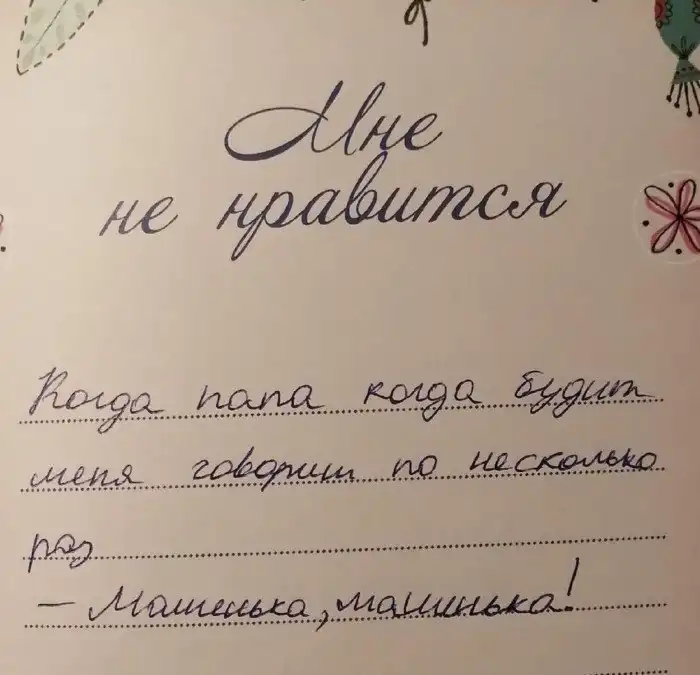 Мне
не нравится
Когда папа когда будит
меня говорит по несколько
раз
– Машенька, машинька!